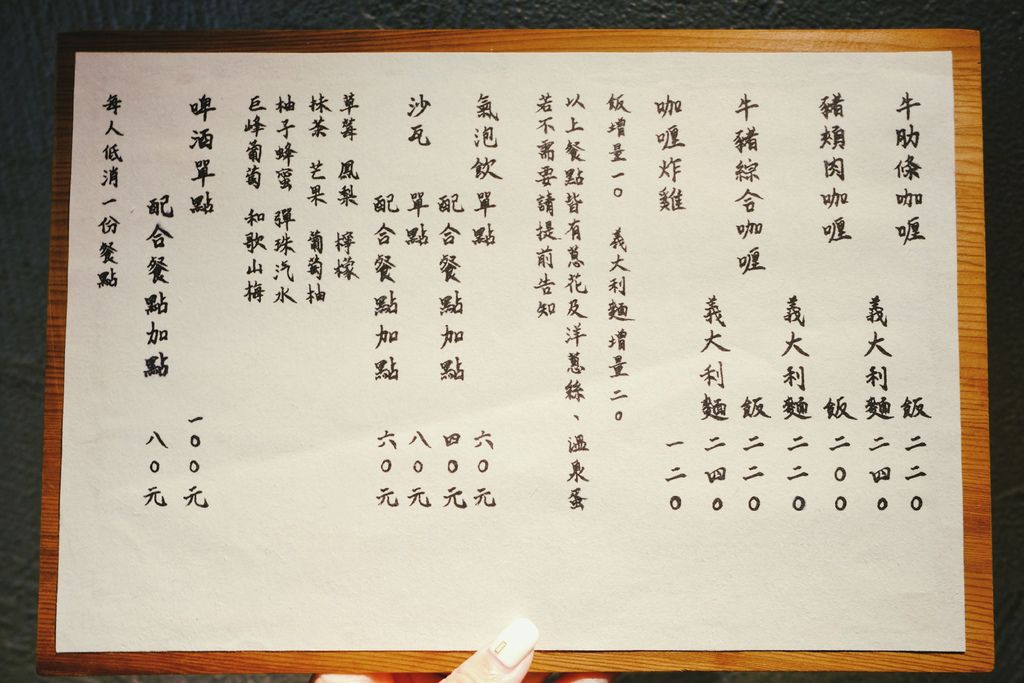 牛肋條咖喱
飯二二〇
義大利麵二四〇
豬頰肉咖喱
飯二〇〇
義大利麵二二〇
牛豬綜合咖喱
飯二二〇
義大利麵二四〇
咖喱炸雞 一二〇
飯增量一〇 義大利麵增量二〇
以上餐點皆有蔥花及洋蔥絲、溫泉蛋
若不需要請提前告知
氣泡飲 單點 六〇元
配合餐點加點 四〇元
沙瓦 單點 八〇元
配合餐點加點 六〇元
草莓 鳳梨 檸檬
抹茶 芒果 葡萄柚
柚子蜂蜜 彈珠汽水
巨峰葡萄 和歌山梅
啤酒單點 一〇〇元
配合餐點加點 八〇元
每人低消一份餐點